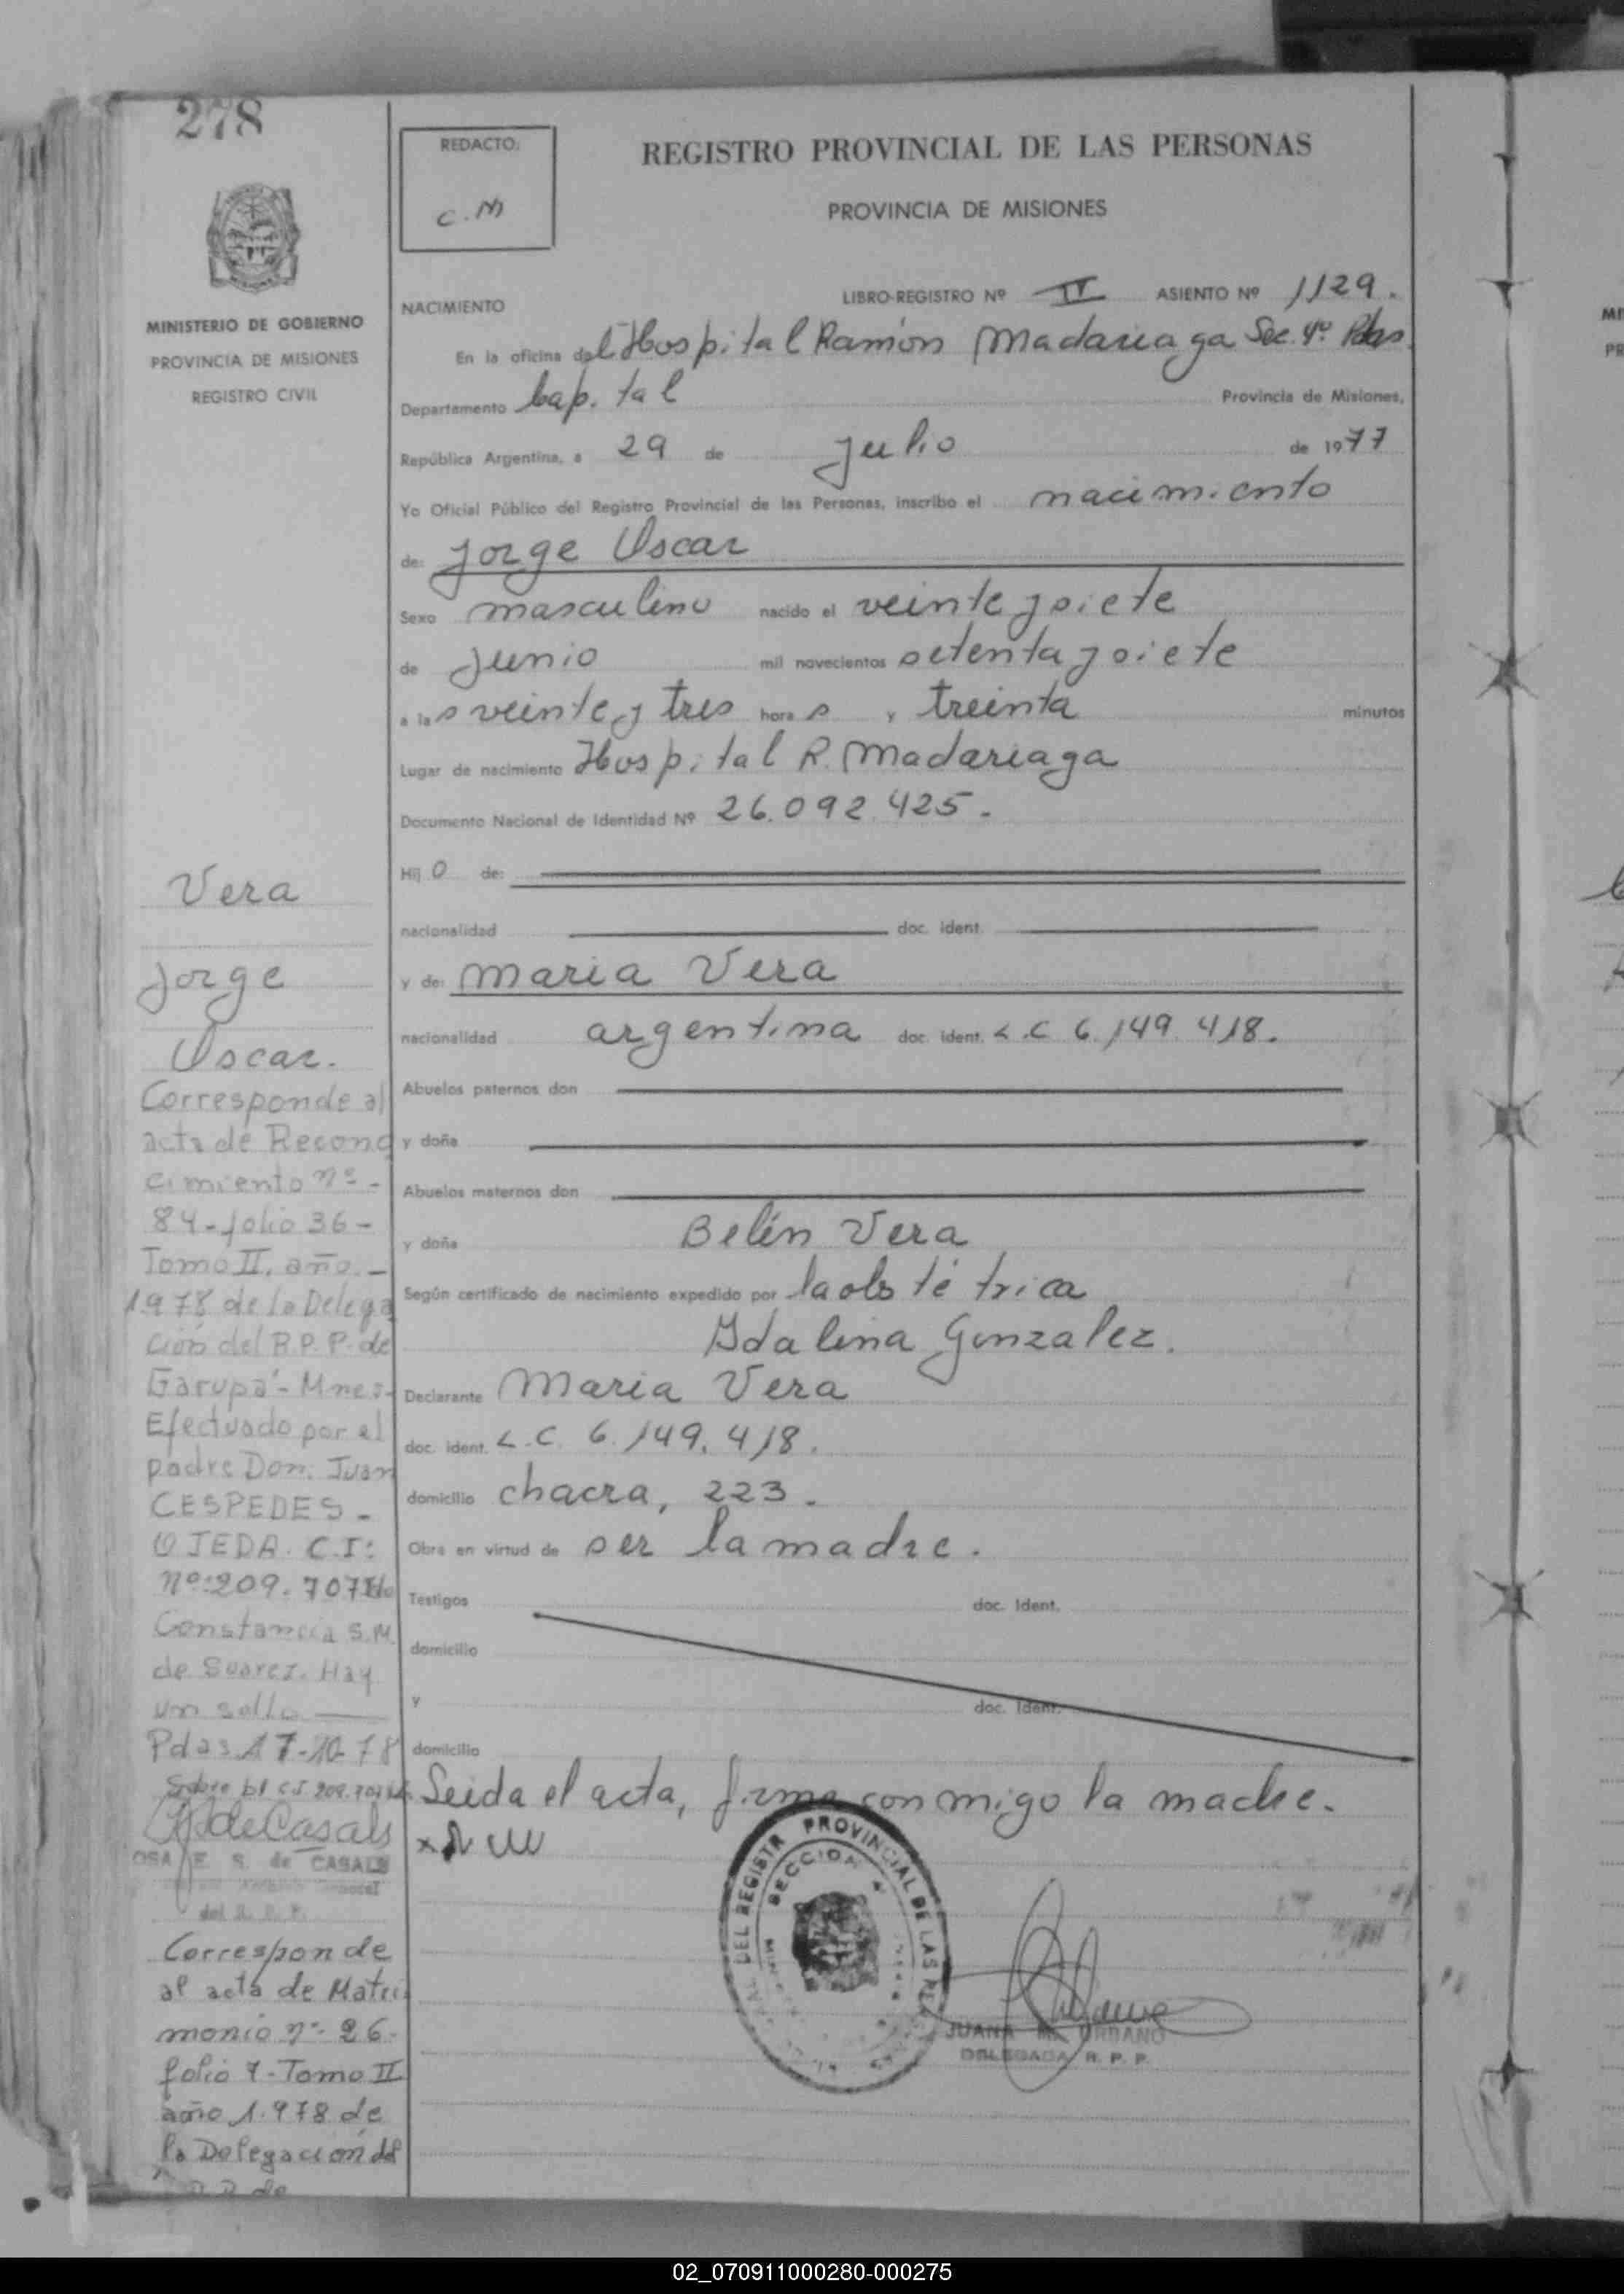 278
REDACTO:
C. M
REGISTRO PROVINCIAL DE LAS PERSONAS
PROVINCIA DE MISIONES
MINISTERIO DE GOBIERNO
PROVINCIA DE MISIONES
REGISTRO CIVIL
NACIMIENTO
LIBRO-REGISTRO Nº II ASIENTO Nº 1129.
En la oficina del Hospital Ramón Madariaga Sec. 4º Pdas
Departamento Capital Provincia de Misiones,
República Argentina, a 29 de Julio de 1977
Yo Oficial Público del Registro Provincial de las Personas, inscribo el nacimiento
de: Jorge Oscar
Sexo masculino nacido el veinte y siete
de Junio mil novecientos setenta y siete
a las veinte y tres horas y treinta minutos
Lugar de nacimiento Hospital R. Madariaga
Documento Nacional de Identidad Nº 26.092.425.
Hijo de:
nacionalidad doc. ident.
y de: Maria Vera
nacionalidad argentina doc. ident. L.C 6.149.418.
Abuelos paternos don
y doña
Abuelos maternos don
y doña Belén Vera
Según certificado de nacimiento expedido por la obstétrica
Idalina Gonzalez.
Declarante Maria Vera
doc. ident. L.C. 6.149.418.
domicilio chacra, 223.
Obra en virtud de ser la madre.
Testigos doc. Ident.
domicilio
y doc. Ident.
domicilio
Leida el acta, firma conmigo la madre.
DEL REGISTR PROVINCIAL DE LAS PE
SECCION 4
JUANA M. URBANO
DELEGADA R. P. P.
Vera
Jorge
Oscar.
Corresponde al
acta de Recono
cimiento nº -
84 - folio 36 -
Tomo II. año. -
1.978 de la Delega
ción del R.P.P. de
Garupá - Mnes.
Efectuado por el
padre Don. Juan
CESPEDES -
OJEDA. C.I:
nº: 209.707
Constancia S.M.
de Suarez. Hay
un sello
Pdas. 17-10-78
de Casals
OSA E. S. de CASALS
Archivo General
del R. P. P.
Corresponde
al acta de Matri
monio nº 26-
folio 7 - Tomo II
año 1.978 de
la Delegación del
02_070911000280-000275